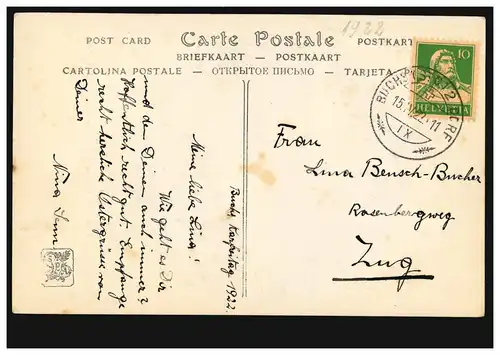 1922
POST CARD
Carte Postale
POSTKART
BRIEFKAART — POSTKAART
CARTOLINA POSTALE — ОТКРЫТОЕ ПИСЬМО — TARJETA
10
HELVETIA
BUCHS
DORF
15.IV.22.11
IX
Buchs Karfreitag 1922.
Meine liebe Lina!
Wie geht es Dir
und den Deinen auch immer?
Hoffentlich recht gut. Empfange
recht herzliche Ostergrüsse von
Deiner
Nina Senn
Frau
Lina Bensch-Bucher
Rosenbergweg
Zug